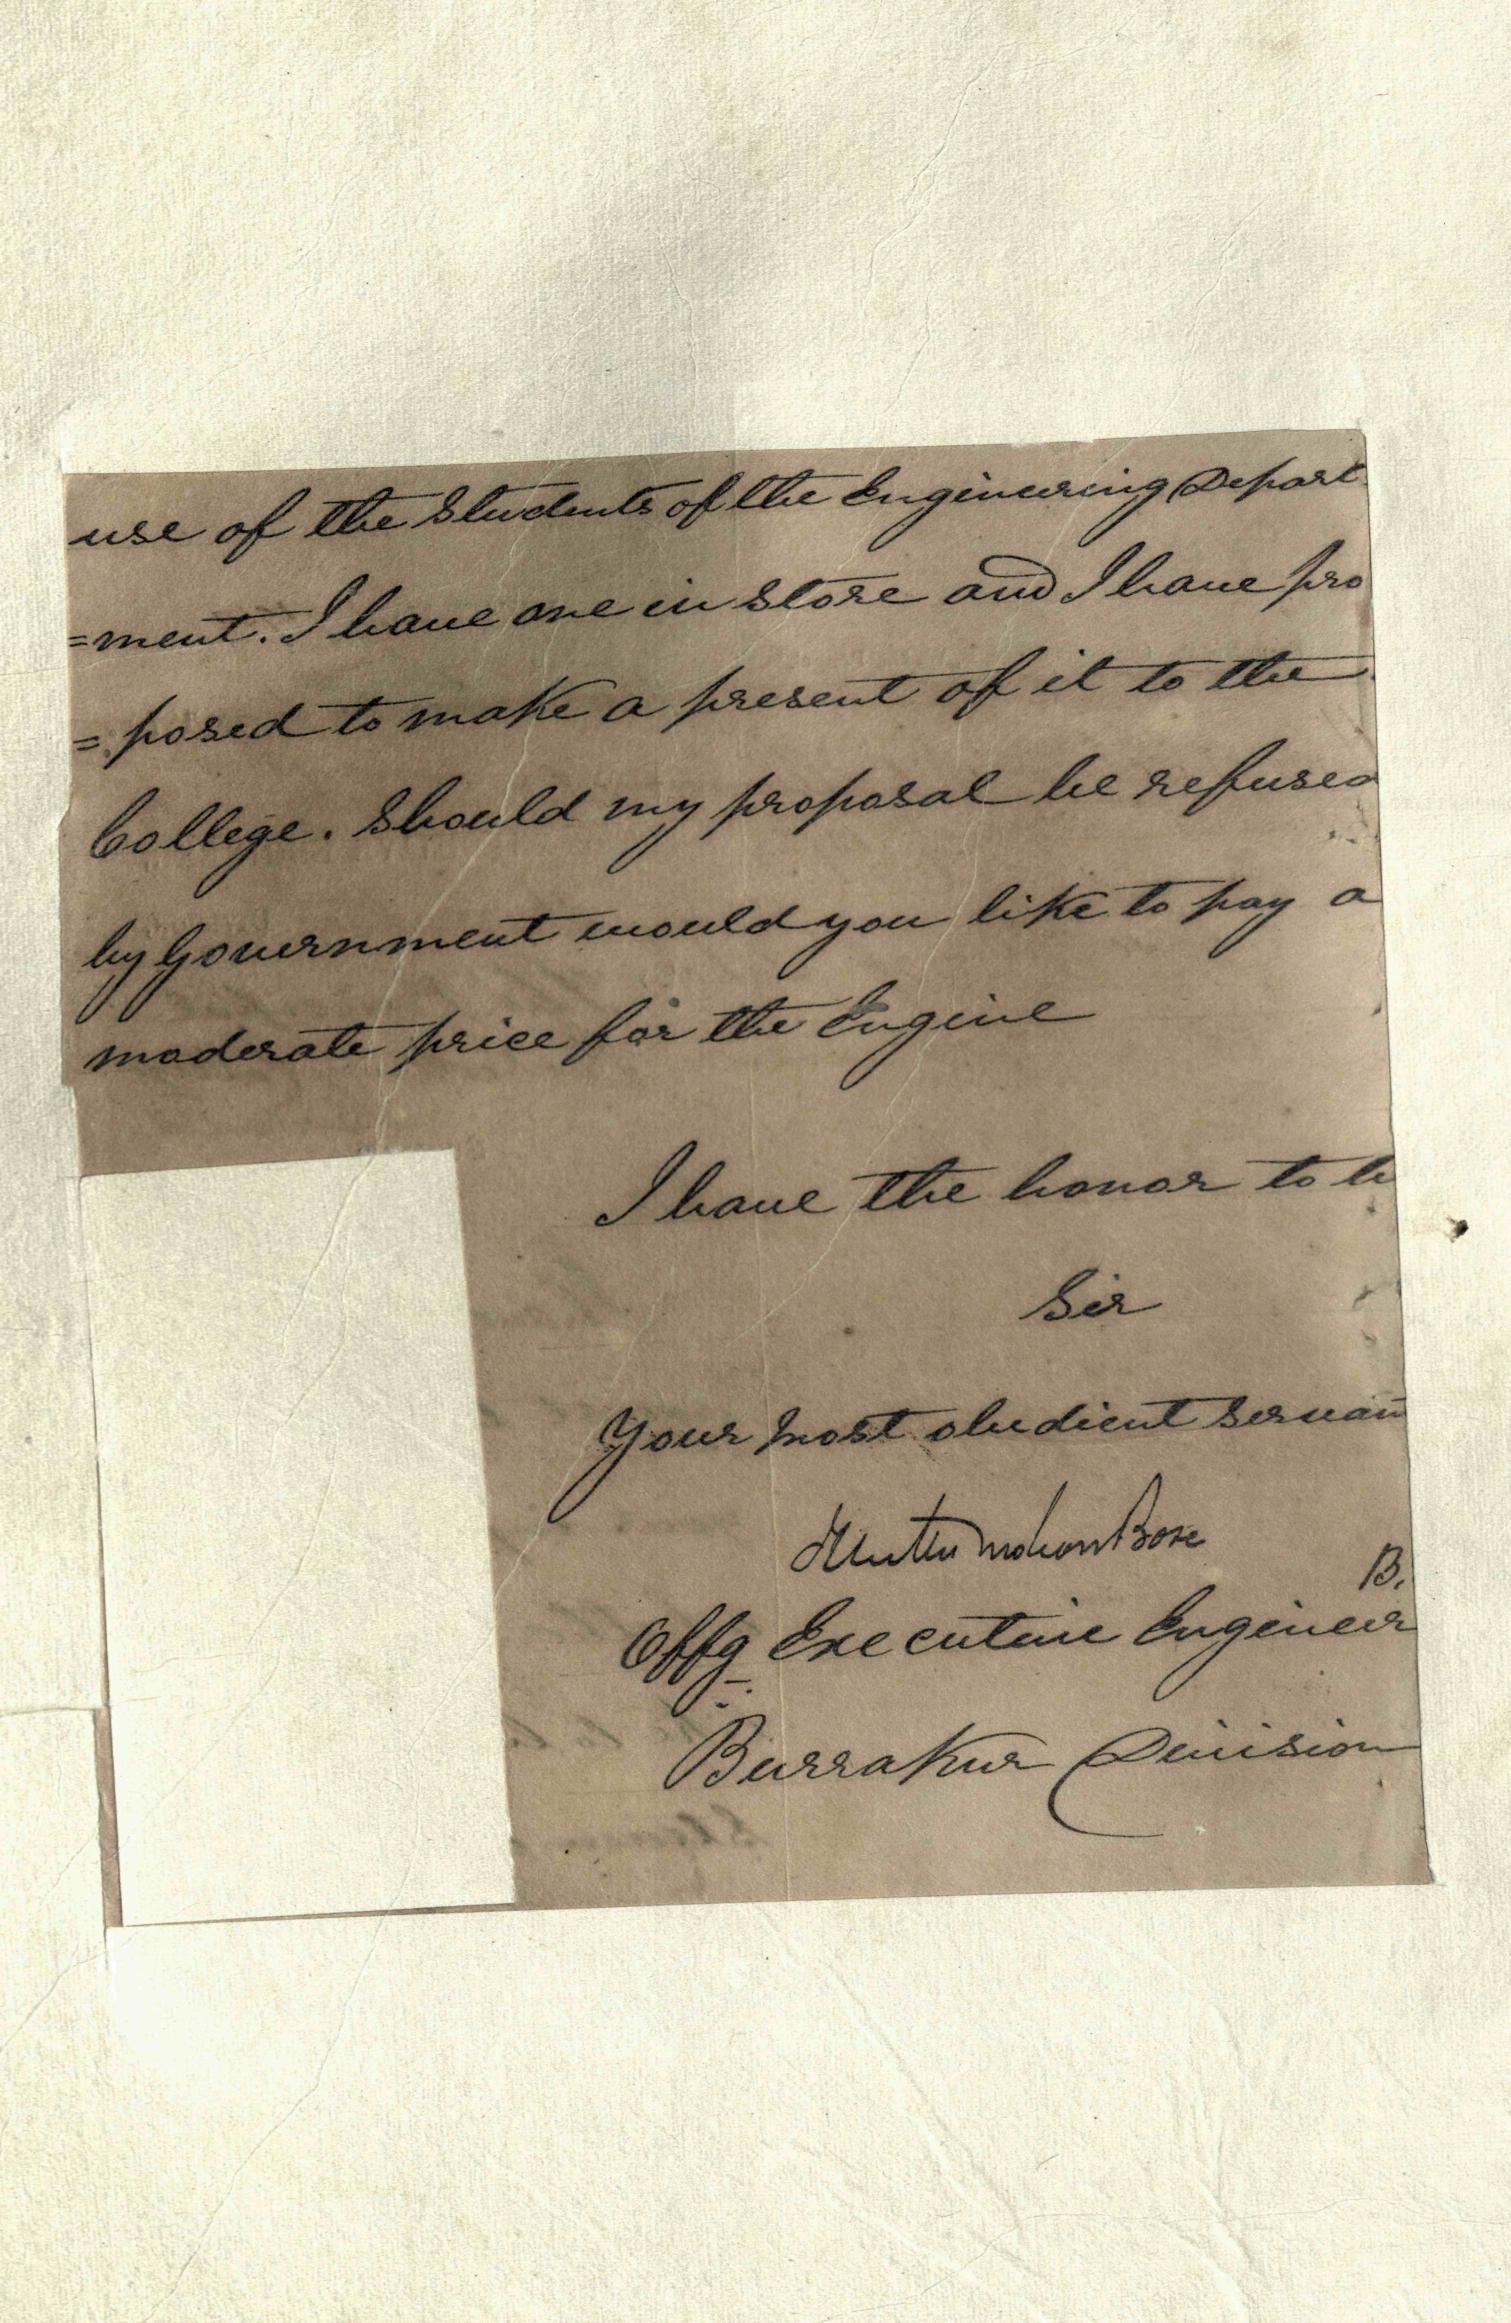 use of the Students of the Engineering Depart
=ment. I have one in store and I have pro
=posed to make a present of it to the
College. Should my proposal be refused
by Government would you like to pay a
moderate price for the Engine
I have the honor to b
Sir
Your most obedient servan
Bose
B.
Offg Executive Engineer
Burrakur Division